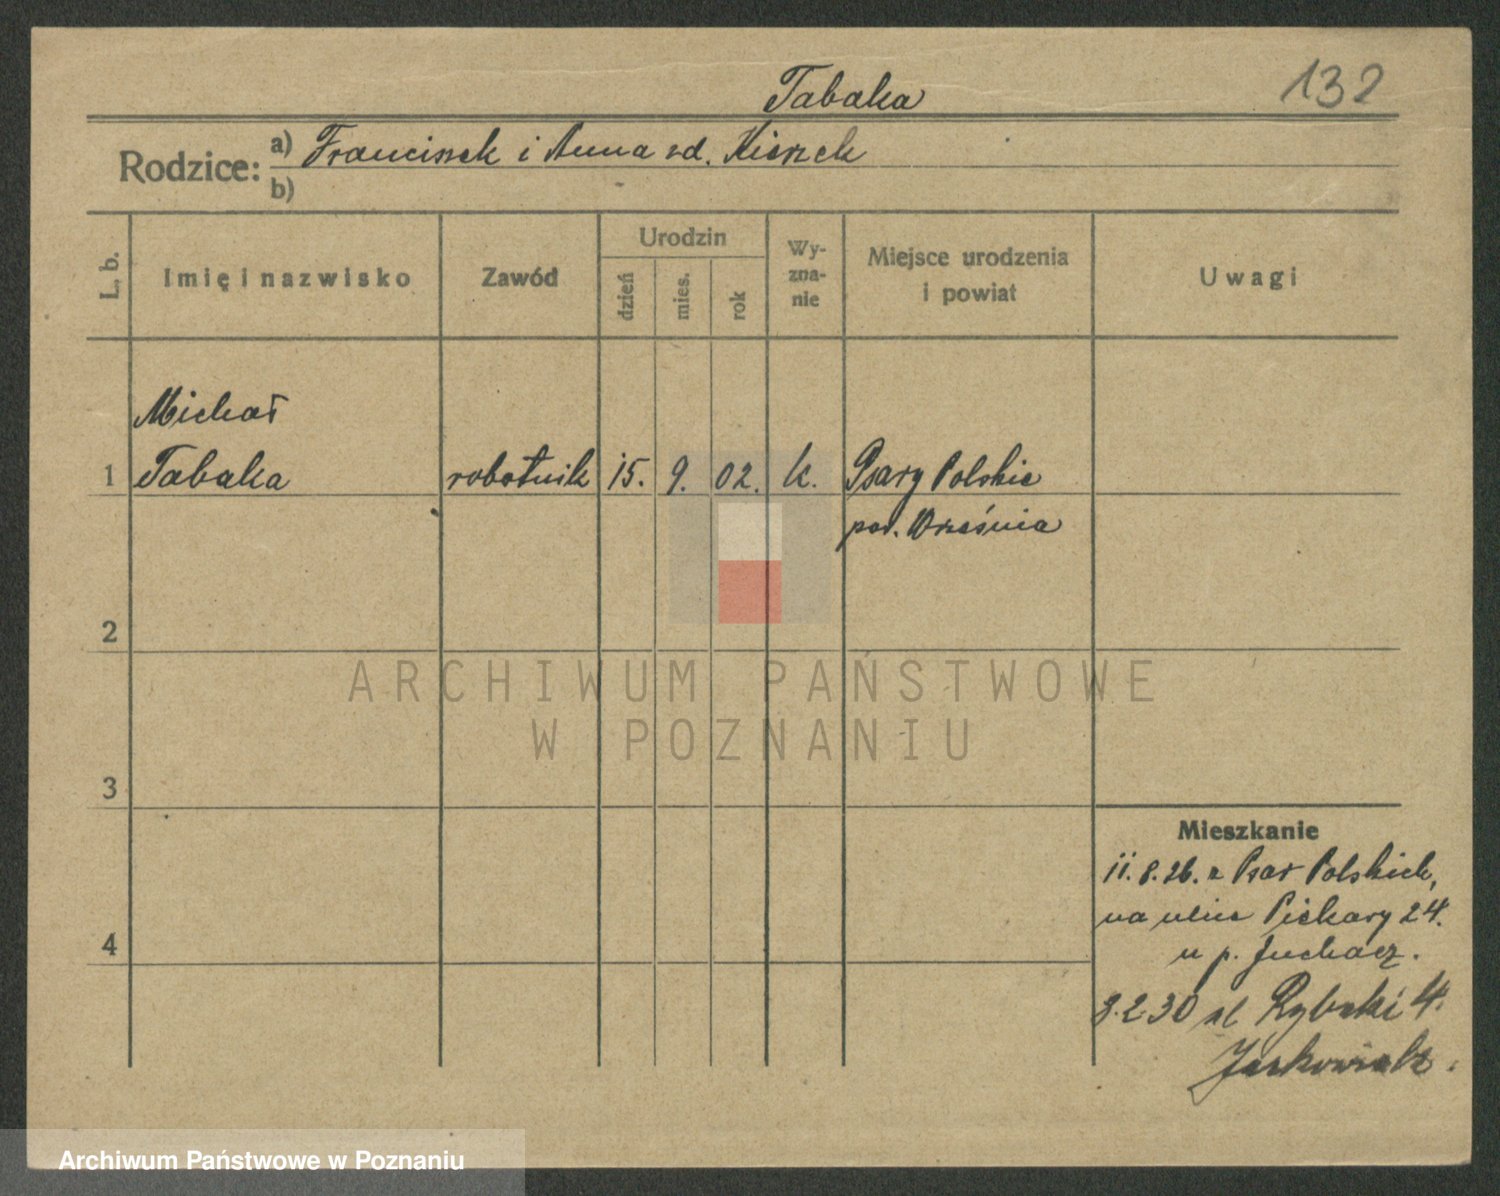 Tabaka
132
Rodzice:
a) Franciszek i Anna zd. Kierzek
b)
L. b.
Imię i nazwisko
Zawód
Urodzin
dzień
mies.
rok
Wy-
zna-
nie
Miejsce urodzenia
i powiat
Uwagi
Michał
1 Tabaka robotnik 15. 9. 02. k. Psary Polskie
pow. Września
2
3
4
ARCHIWUM PAŃSTWOWE
W POZNANIU
Mieszkanie
11.8.26. z Psar Polskich,
na ulice Piekary 24.
u p. Juchacz.
3.2.30 ul Rybaki 4.
Archiwum Państwowe w Poznaniu